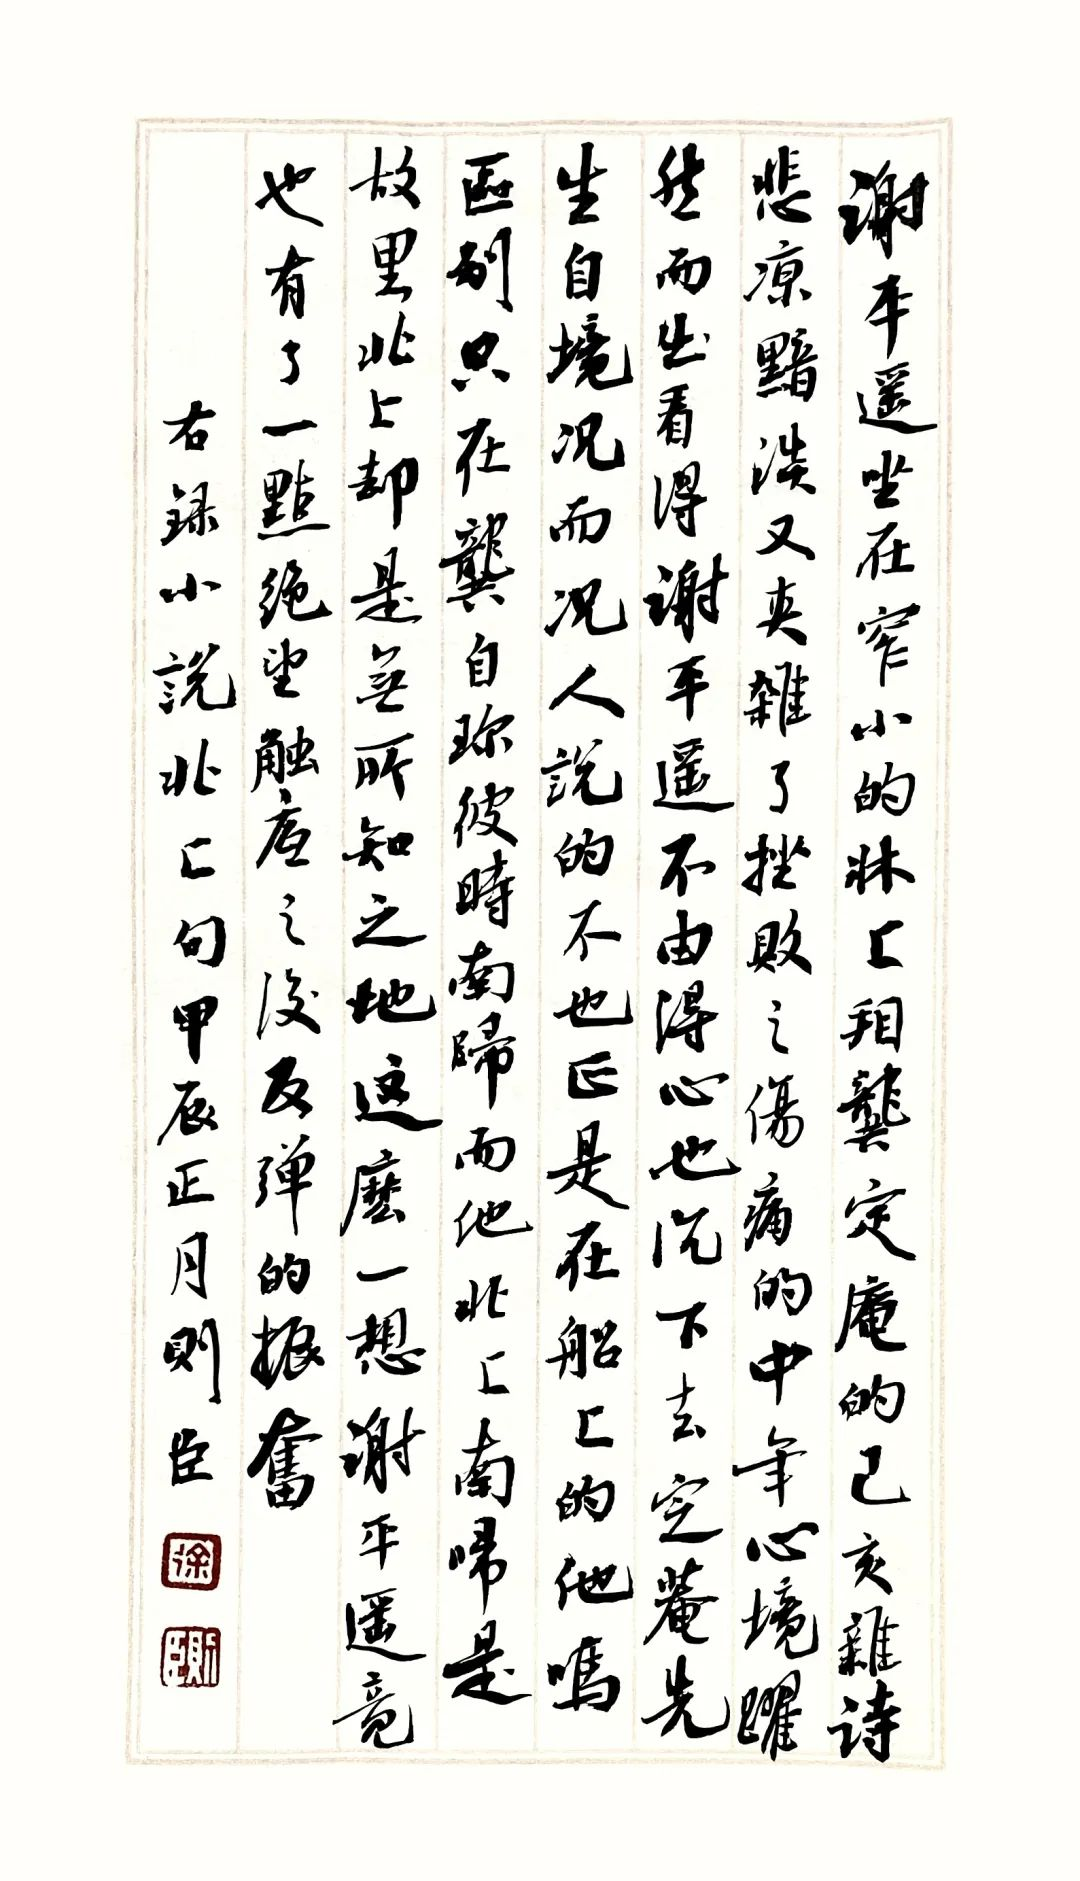 謝平遥坐在窄小的牀上翻龔定庵的己亥雜詩
悲凉黯淡又夹雜了挫敗之傷痛的中年心境躍
然而出看得谢平遥不由得心也沉下去定菴先
生自境况而况人說的不也正是在船上的他嗎
區别只在龔自珍彼時南歸而他北上南歸是
故里北上却是無所知之地这麽一想谢平遥竟
也有了一點绝望触底之後反弹的振奮
右録小説北上句甲辰正月則臣
徐
則臣